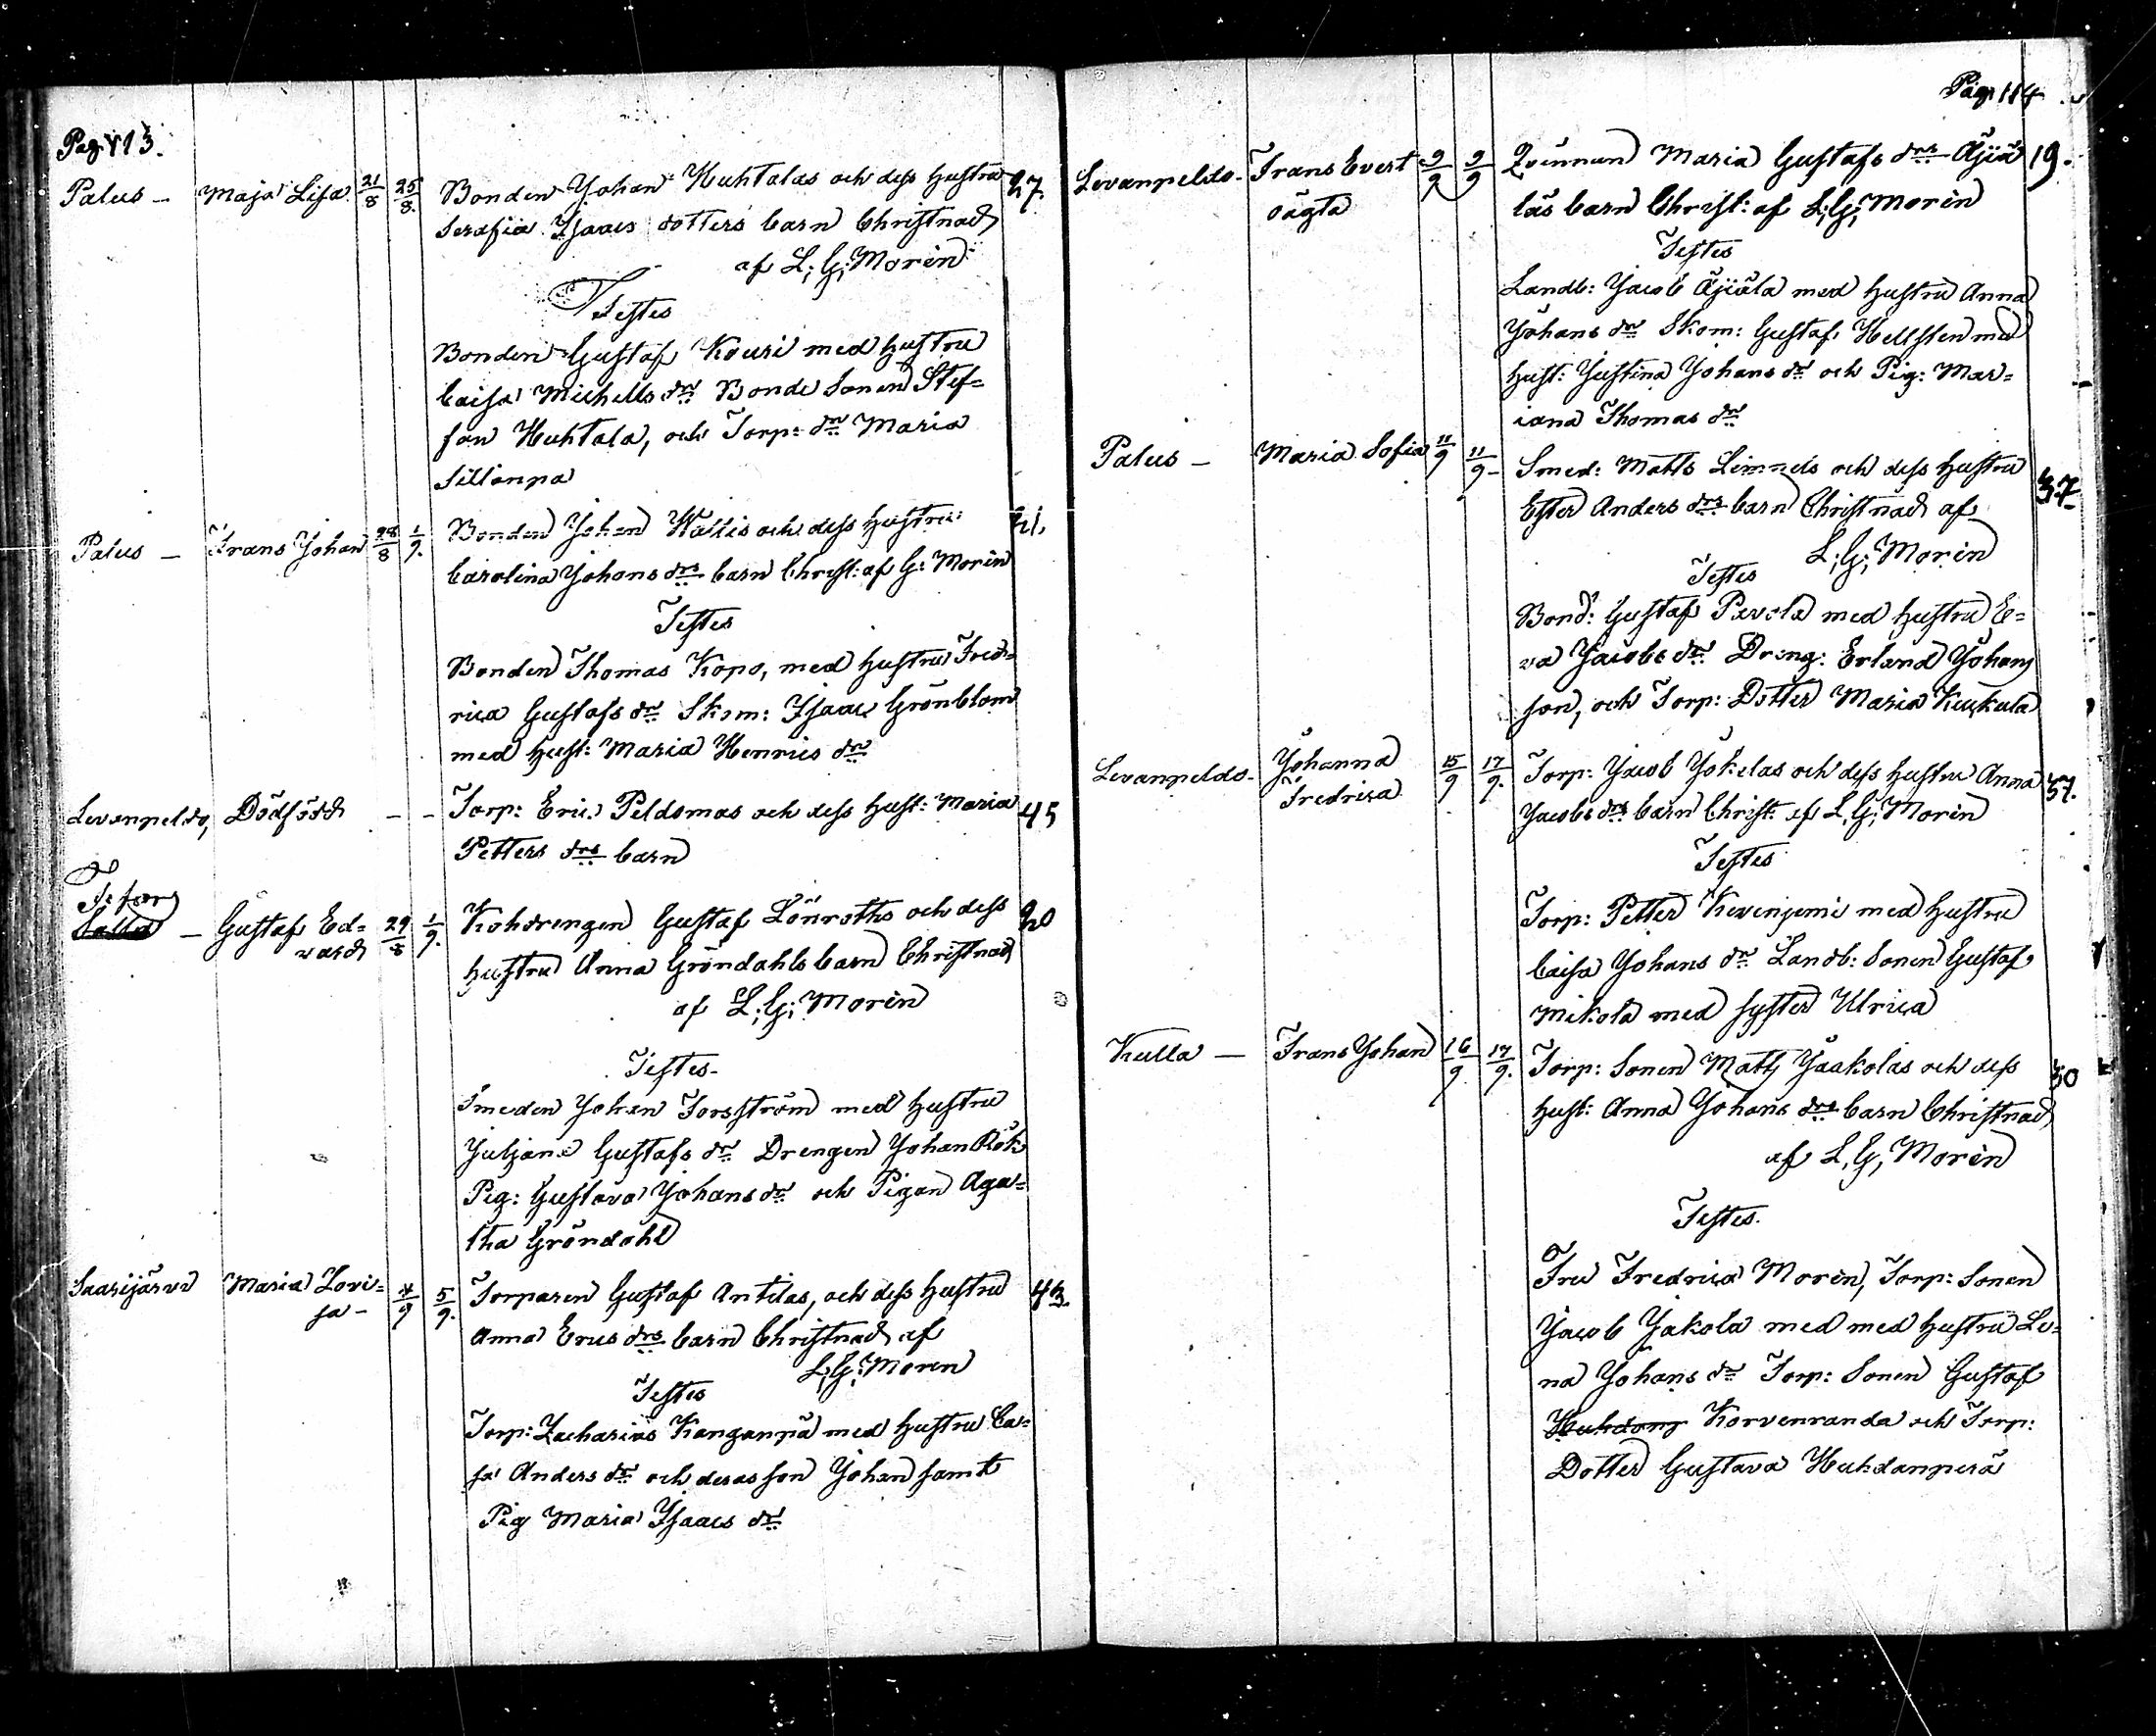 Pag. 113.
Palus – Maja Lisa 21/8 25/8. Bonden Johan Huhtalas och dess hustru 27.
Serafia Isaacs dotters barn Christnad
af L: G: Morin
Testes
Bonden Gustaf Kouri med hustru
Caisa Michells dr Bonde Sonen Stef=
fan Huhtala, och Torp: dr Maria
Sillanpä
Palus – Frans Johan 28/8 1/9. Bonden Johan Wallis och dess hustru 21.
Carolina Johans drs barn Christ: af G: Morin
Testes
Bonden Thomas Kopo, med hustru Fred=
rica Gustafs dr Skom: Isaac Grönblom
med Hust: Maria Henrics dr
Levanpeldo, Dödfödd – – Torp: Eric Peldomas och dess Hust: Maria 45
Petters drs barn
Gustaf Ed= 29/8 1/9. Kohdrengen Gustaf Lönroths och dess 20
vard hustru Anna Gröndahls barn Christnad
af L: G: Morin
Testes.
Smeden Johan Forsström med hustru
Juljana Gustafs dr Drengen Johan Rök
Pig: Gustava Johans dr och Pigan Aga=
tha Gröndahl
Saarijärvi Maria Lovi= 4/9 5/9. Torparen Gustaf Antilas, och dess hustru 43.
sa – Anna Erics drs barn Christnad af
L: G: Morin
Testes
Torp: Zacharias Kanganpä med hustru Ca=
sa Anders dr och deras son Johan samt
Pig Maria Isaacs dr
Pag. 114
Levanpeldo – Frans Evert 9/9 9/9 Qvinnan Maria Gustafs drs Äjiä 19.
oägta läs barn Christ: af L: G: Morin
Testes
Landb: Jacob Äjiälä med hustru Anna
Johans dr Skom: Gustaf Hellsten med
hust: Justina Johans dr och Pig: Mar=
iana Thomas dr
Palus – Maria Sofia 11/9 11/9 – Smed: Matts Limnels och dess hustru 37.
Ester Anders drs barn Christnad af
L: G: Morin
Testes
Bond: Gustaf Pavola med hustru E=
va Jacobs dr Dreng: Erland Johans
son, och Torp: Dotter Maria Kuukula
Levanpeldo – Johanna 15/9 17/9. Torp: Jacob Jokelas och dess hustru Anna 57.
Fredrica Jacobs drs barn Christ: af L. G: Morin
Testes
Torp: Petter Kivenjemi med hustru
Caisa Johans dr Landb: Sonen Gustaf
Mikola med syster Ulrica
Kulla – Frans Johan 16/9 17/9. Torp: Sonen Matts Jaakolas och dess 30
Hust: Anna Johans drs barn Christnad
af L, G, Morin
Testes.
Fru Fredrica Morin, Torp: Sonen
Jacob Jakola med med hustru Le=
na Johans dr Torp: Sonen Gustaf
Korvenranda och Torp:
Dotter Gustava Huhdanperä